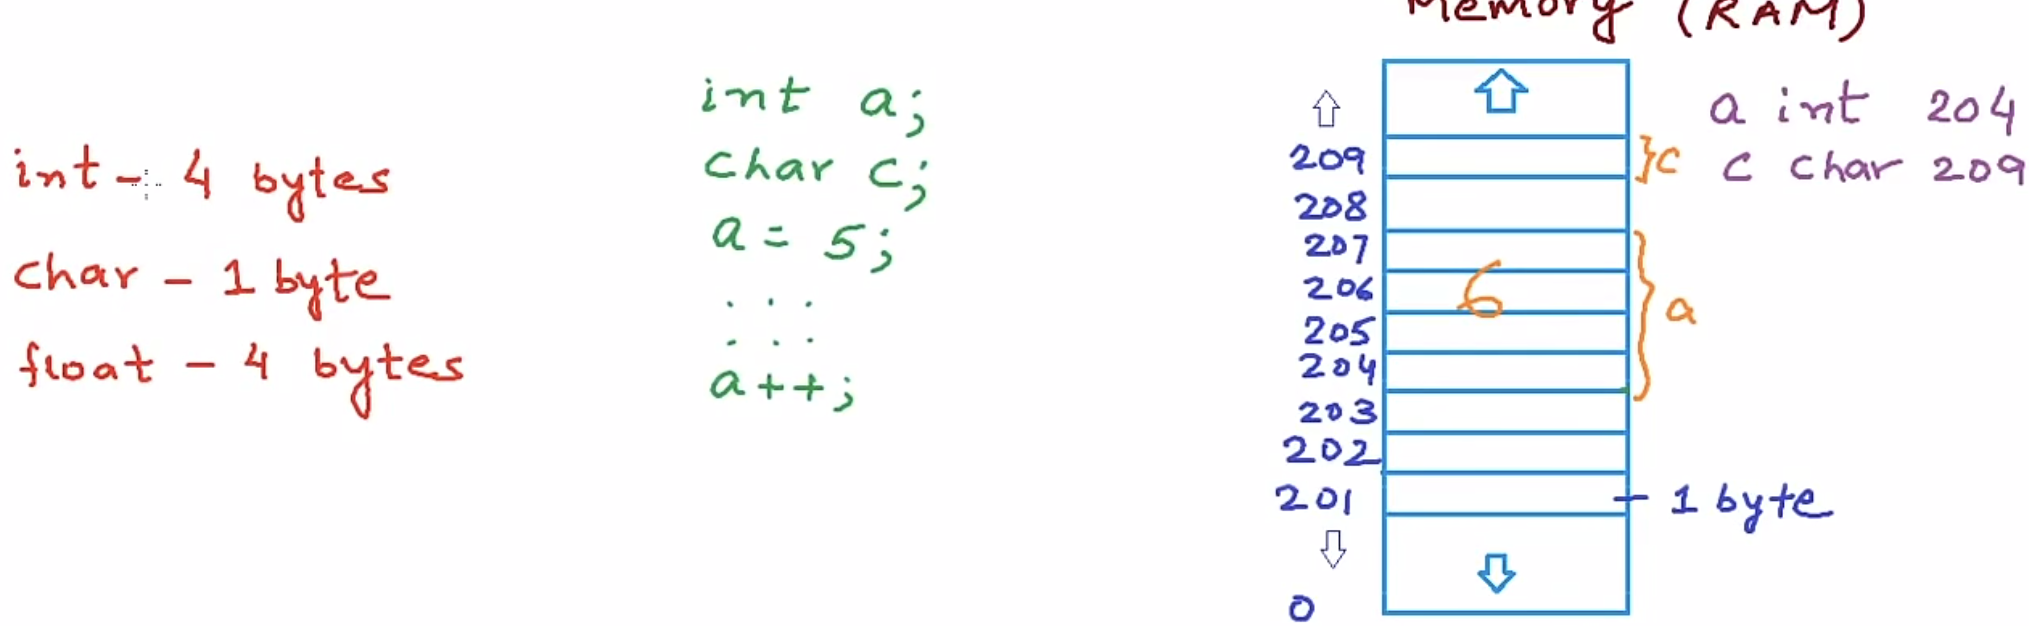 Memory (RAM)
int - 4 bytes
char - 1 byte
float - 4 bytes
int a;
char c;
a = 5;
. . .
. . .
a++;
209
208
207
206
205
204
203
202
201
0
6
}c
}a
1 byte
a int 204
c char 209